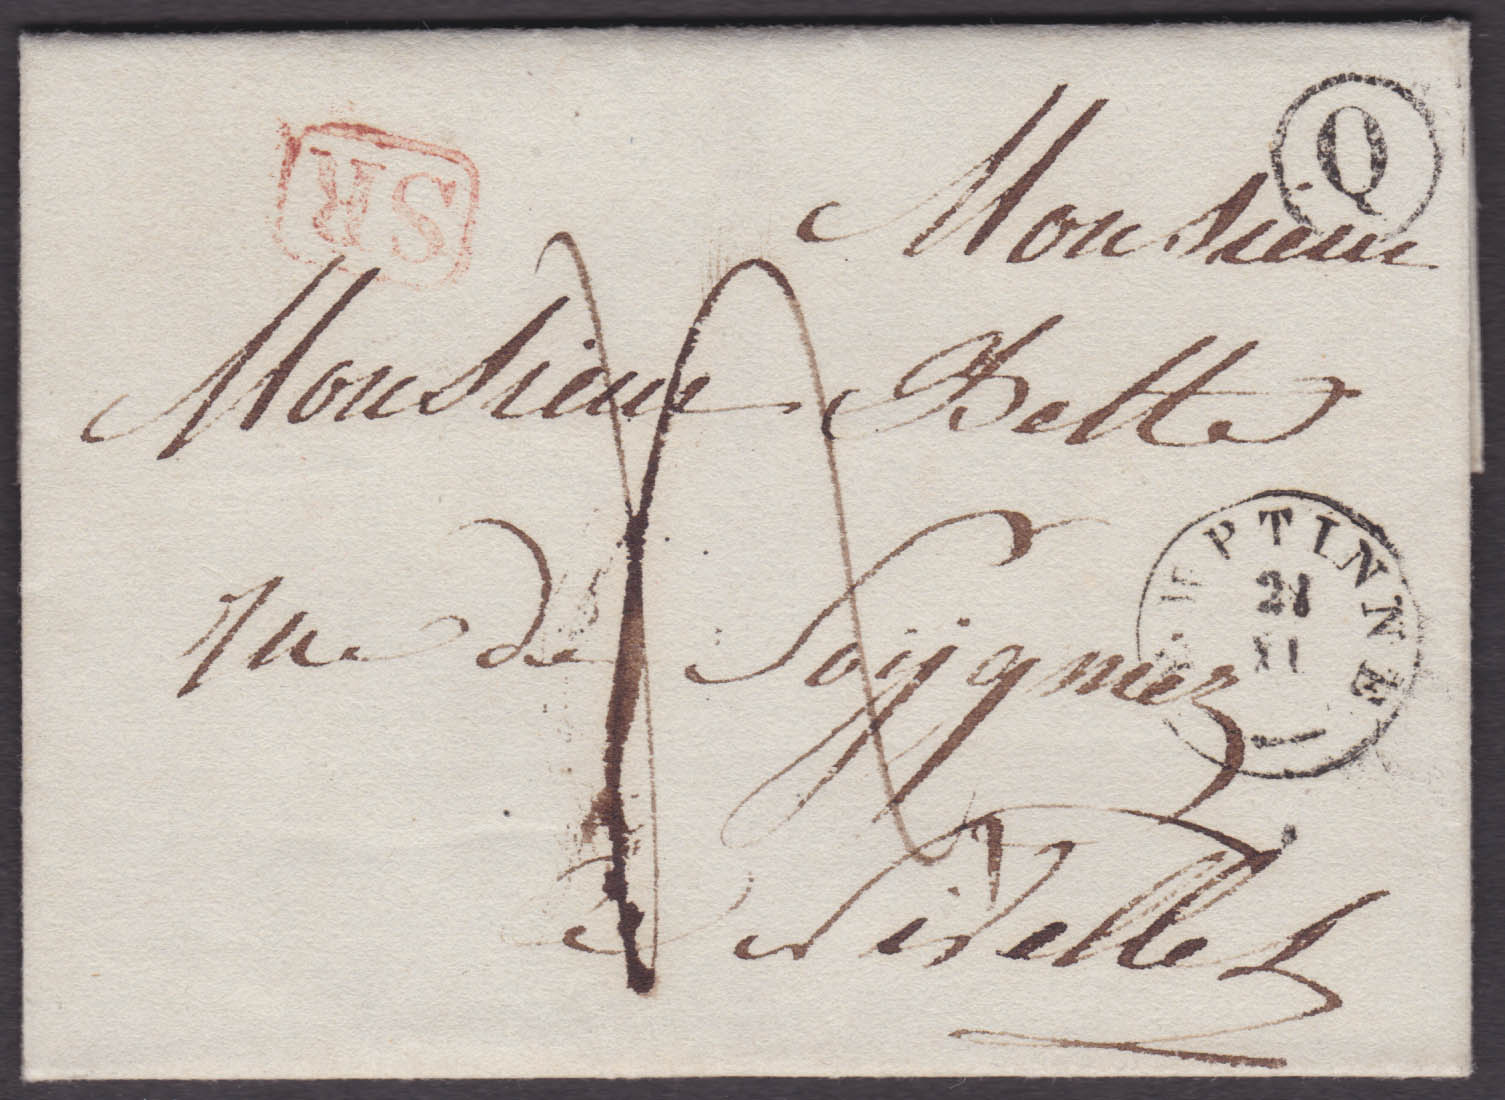 SR
Q
Monsieur
Monsieur Bette
rue de Soignies
HEPTINNE
21
XI
a Nivelles